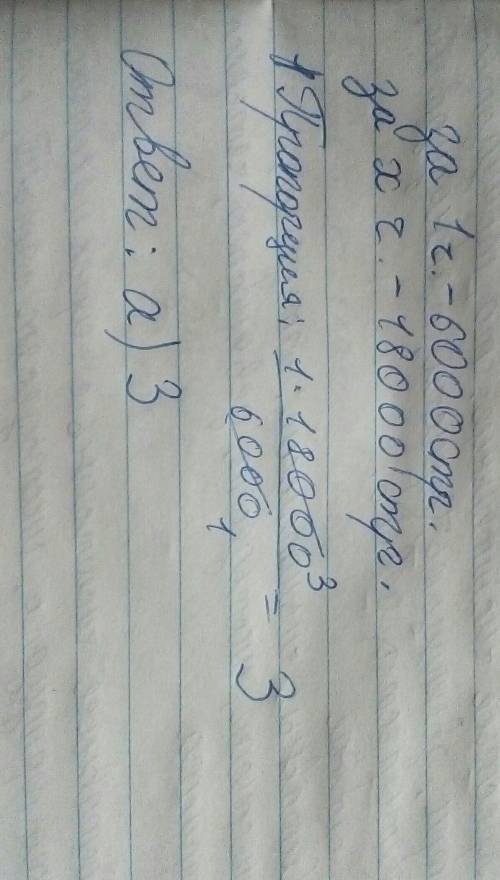 за 1 ч. - 6000 стр.
за х ч. - 18000 стр.
Пропорция: 1·18000 3
6000 1 = 3
Ответ: а) 3